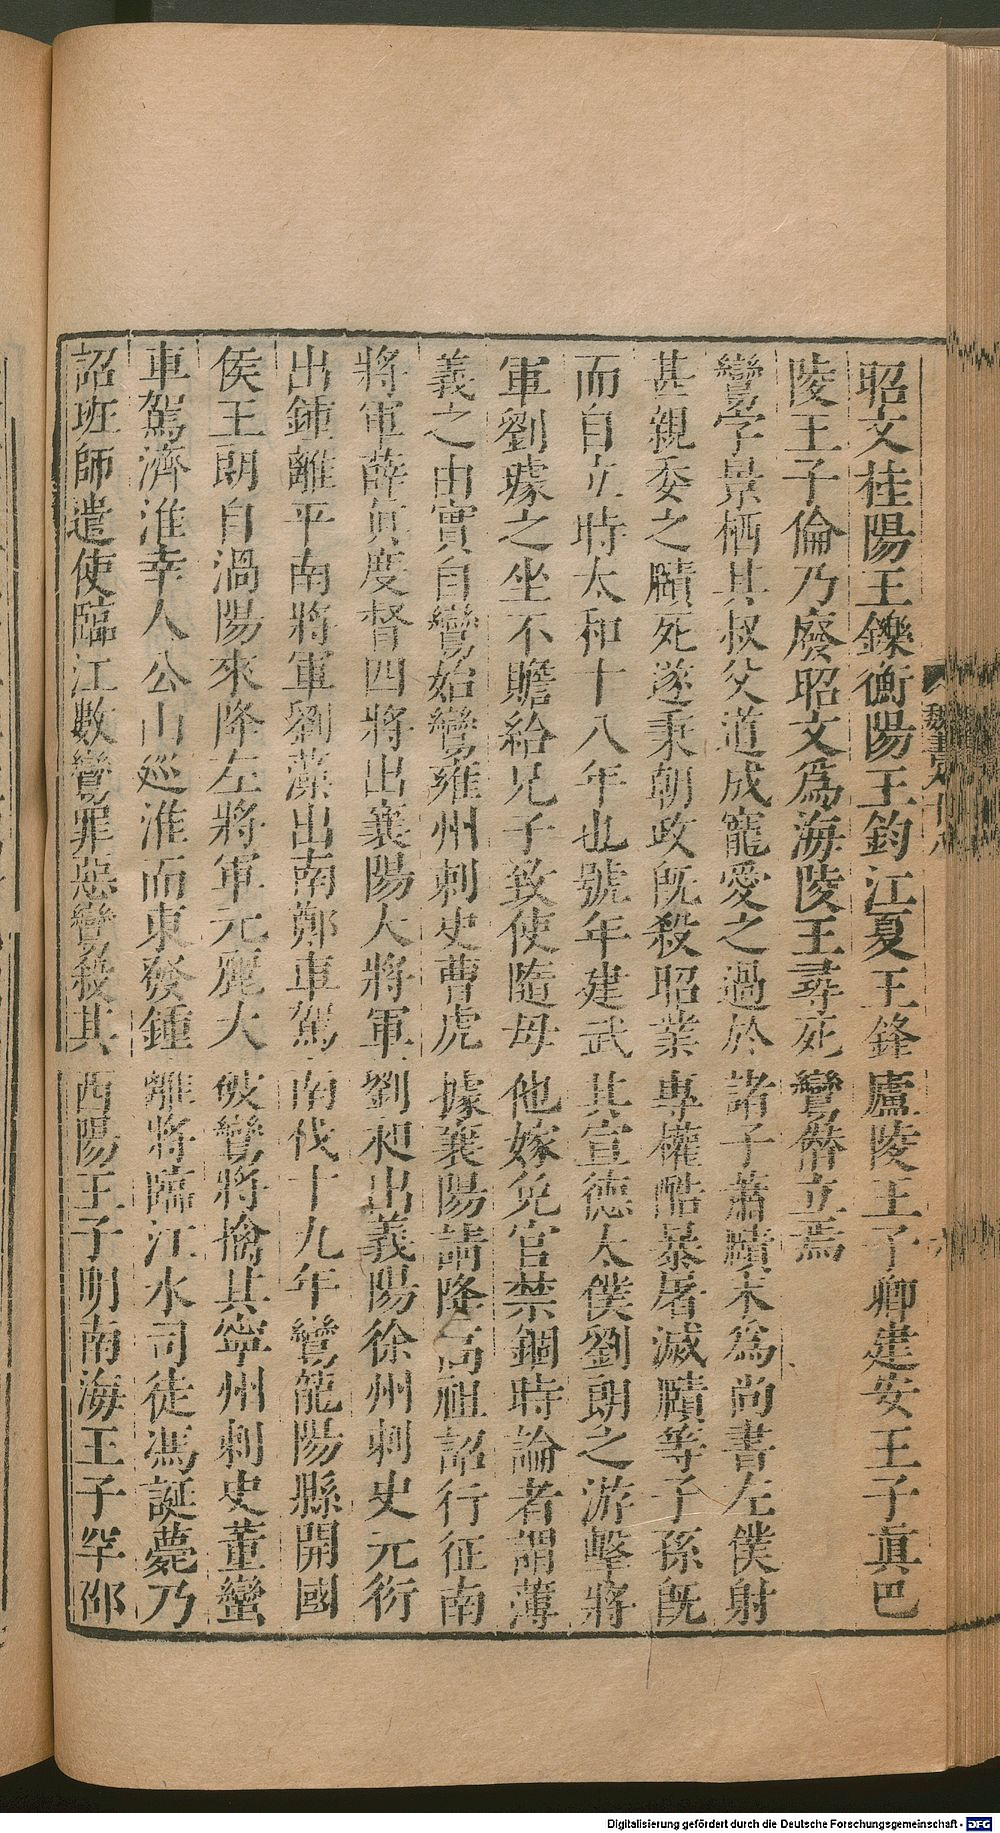 昭文桂陽王鑠衡陽王鈞江夏王鋒廬陵王子卿建安王子真巴
陵王子倫乃廢昭文爲海陵王尋死鸞僭立焉
鸞字景栖其叔父道成寵愛之過於諸子蕭賾末爲尚書左僕射
甚親委之賾死遂秉朝政旣殺昭業專權酷暴屠滅賾等子孫旣
而自立時太和十八年也號年建武其宣德太僕劉朗之游擊將
軍劉璩之坐不贍給兄子致使隨母他嫁免官禁錮時論者謂薄
義之由實自鸞始鸞雍州刺史曹虎據襄陽請降高祖詔行征南
將軍薛真度督四將出襄陽大將軍劉昶出義陽徐州刺史元衍
出鍾離平南將軍劉藻出南鄭車駕南伐十九年鸞龍陽縣開國
侯王朗自渦陽來降左將軍元麗大破鸞將擒其寧州刺史董蠻
車駕濟淮幸八公山巡淮而東發鍾離將臨江水司徒馮誕薨乃
詔班師遣使臨江數鸞罪惡鸞殺其西陽王子明南海王子罕邵
魏書
Digitalisierung gefördert durch die Deutsche Forschungsgemeinschaft - DFG